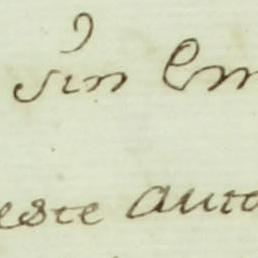 Sin Em
este auto